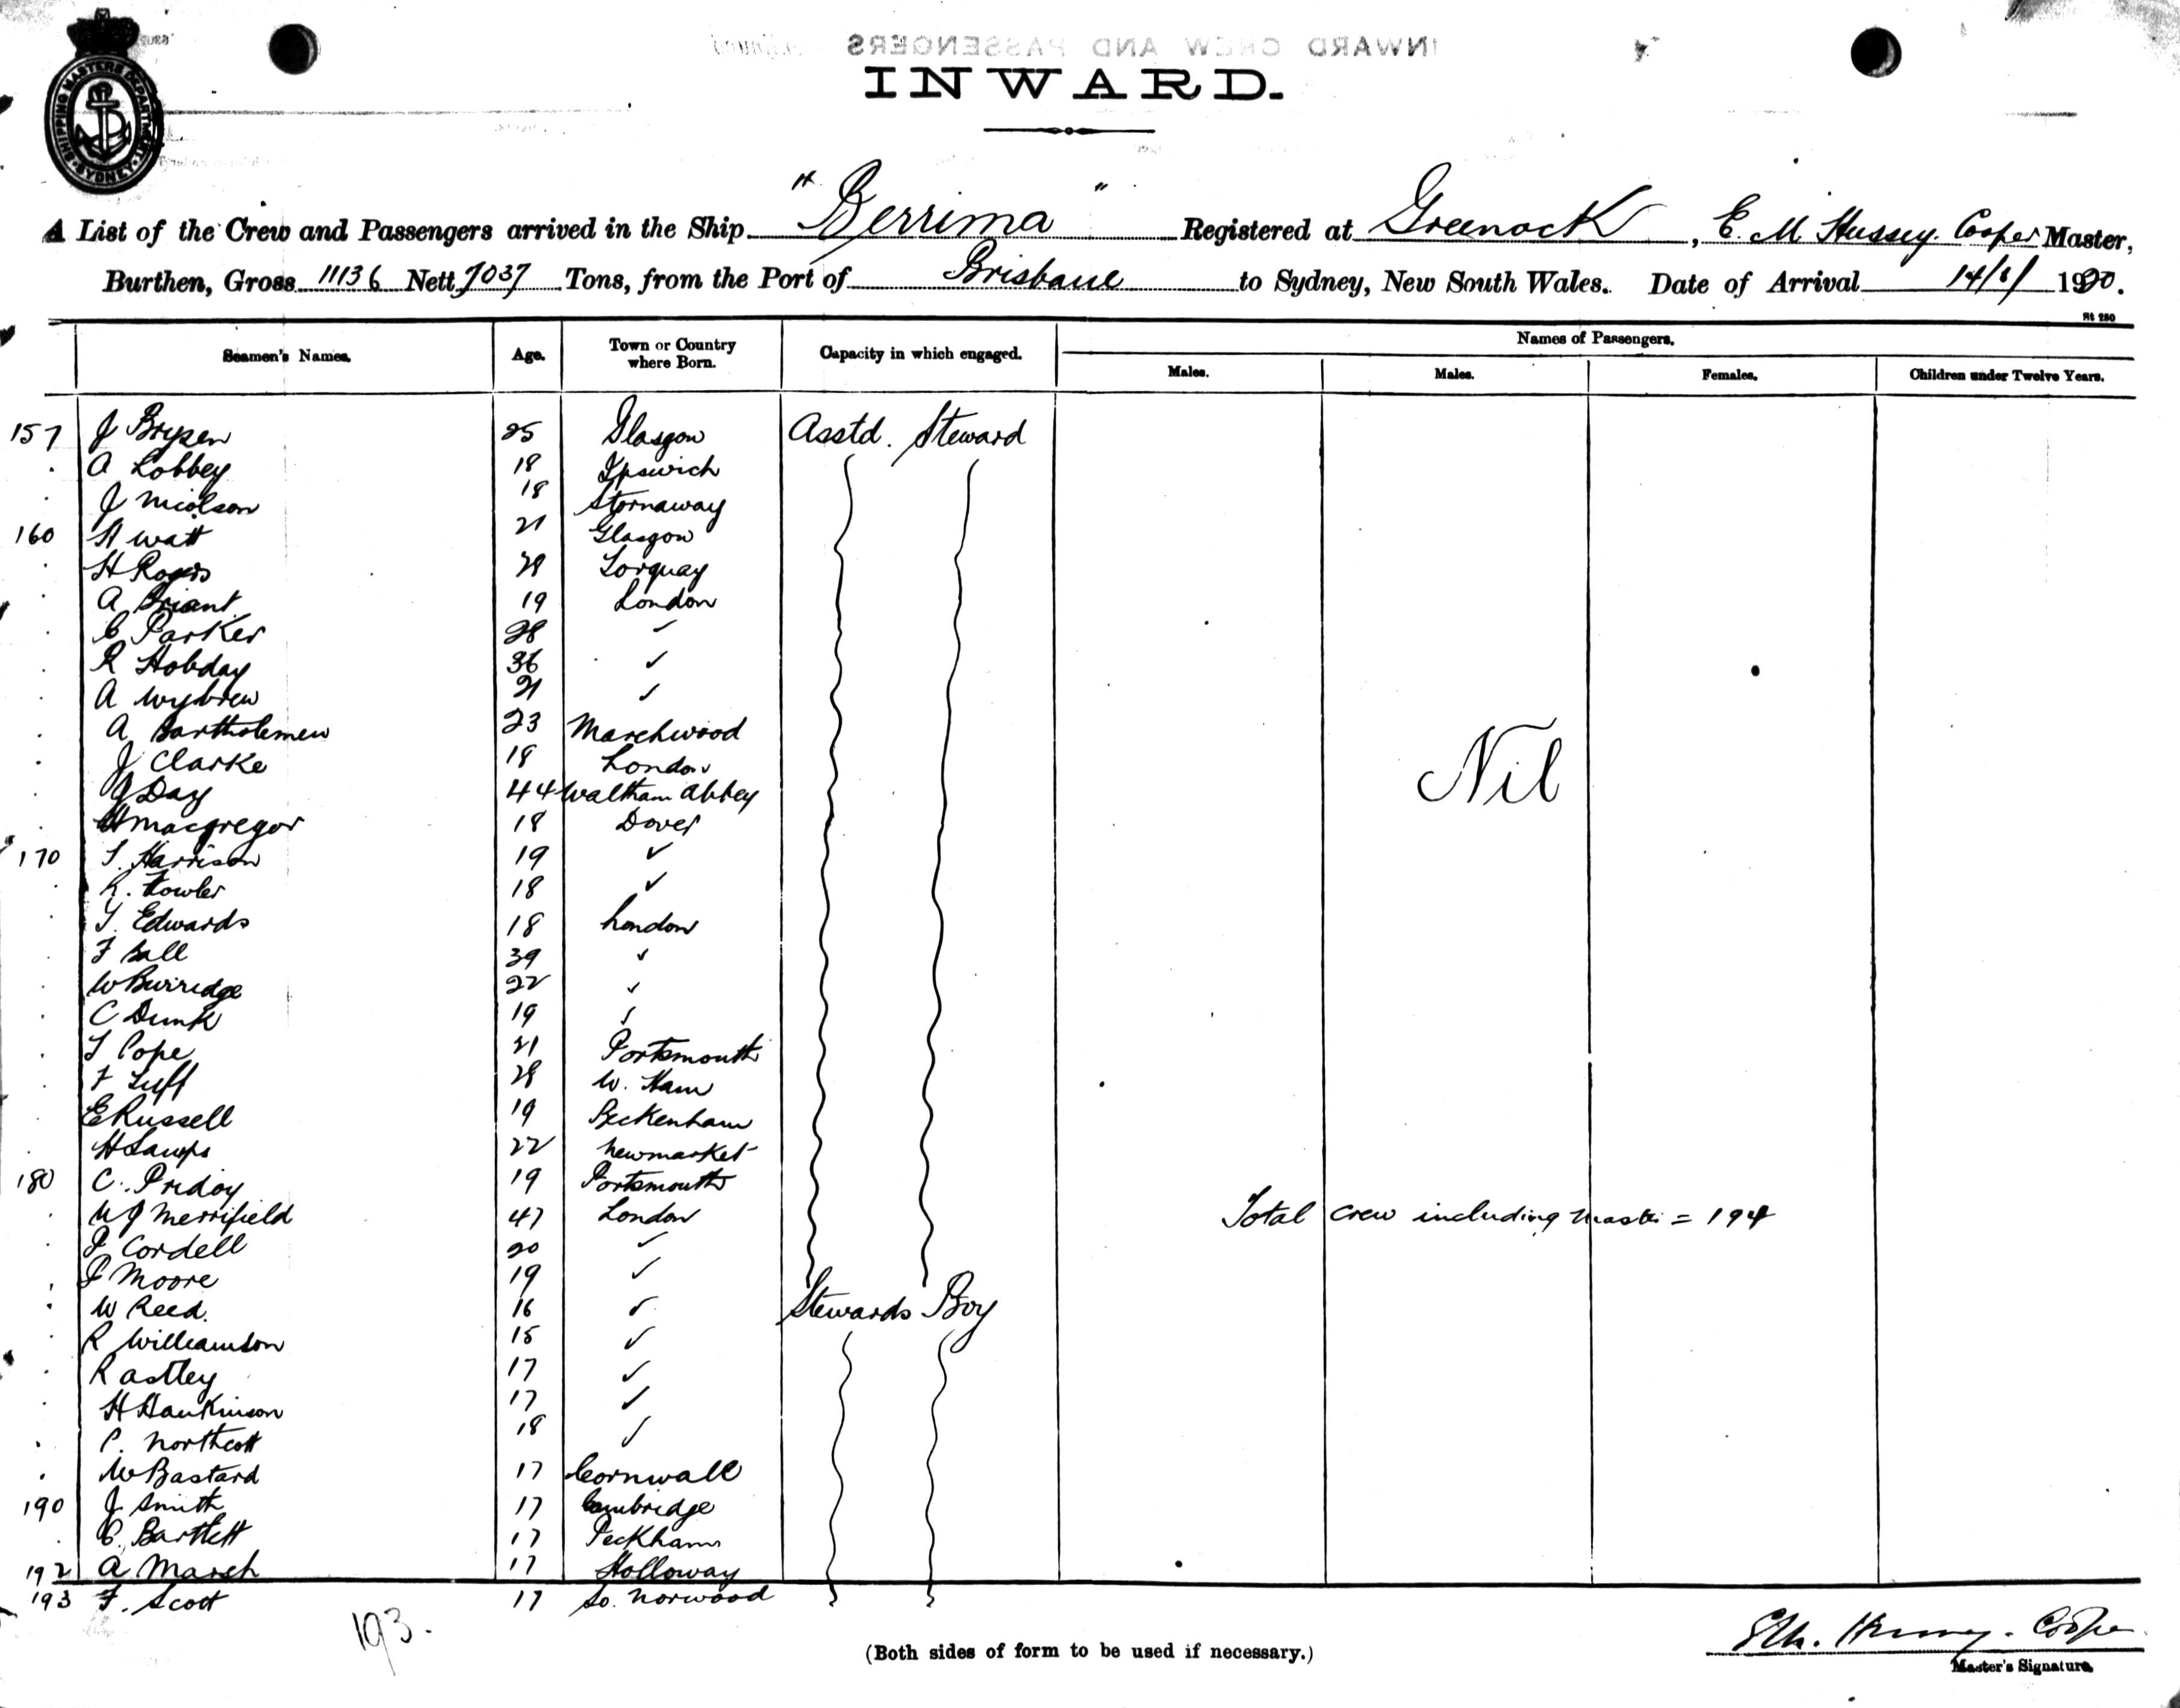 INWARD CREW AND PASSENGERS
INWARD.
SHIPPING MASTERS DEPARTMENT SYDNEY
A List of the Crew and Passengers arrived in the Ship "Berrima" Registered at Greenock, E. M Hussey. Cooper Master,
Burthen, Gross 11136 Nett 7037 Tons, from the Port of Brisbane to Sydney, New South Wales. Date of Arrival 14/8/ 1920.
St 250
Seamen's Names. Age. Town or Country where Born. Capacity in which engaged. Names of Passengers.
Males. Males. Females. Children under Twelve Years.
157 J Brysen 25 Glasgow Asstd. Steward
A Lobbey 18 Ipswich
J Nicolson 18 Stornaway
160 A Watt 21 Glasgow
H Rogers 28 Torquay
A Briant 19 London
C Parker 28 ✓
R Hobday 36 ✓
A Wybrew 21 ✓
A Bartholemew 23 Marchwood
J Clarke 18 London
J Day 44 Waltham Abbey
H Macgregor 18 Dover
Nil
170 T. Harrison 19 ✓
R. Fowler 18 ✓
T. Edwards 18 London
F Ball 39 ✓
W Burridge 22 ✓
C Dunk 19 ✓
T Pope 21 Portsmouth
F Tuff 28 W. Ham
E Russell 19 Beckenham
H 22 Newmarket
180 C. Pridoy 19 Portsmouth
W J Merrifield 47 London
Total crew including Master = 194
P Cordell 20 ✓
P Moore 19 ✓
W Reed. 16 ✓ Stewards Boy
R Williamson 15 ✓
R Astley 17 ✓
H Hankinson 17 ✓
P. Northcott 18 ✓
W Bastard 17 Cornwall
190 J. Smith 17 Cambridge
C. Bartlett 17 Peckham
192 A March 17 Holloway
193 F. Scott 17 So. Norwood
193.
(Both sides of form to be used if necessary.)
E M. Hussey. Cooper
Master's Signature.